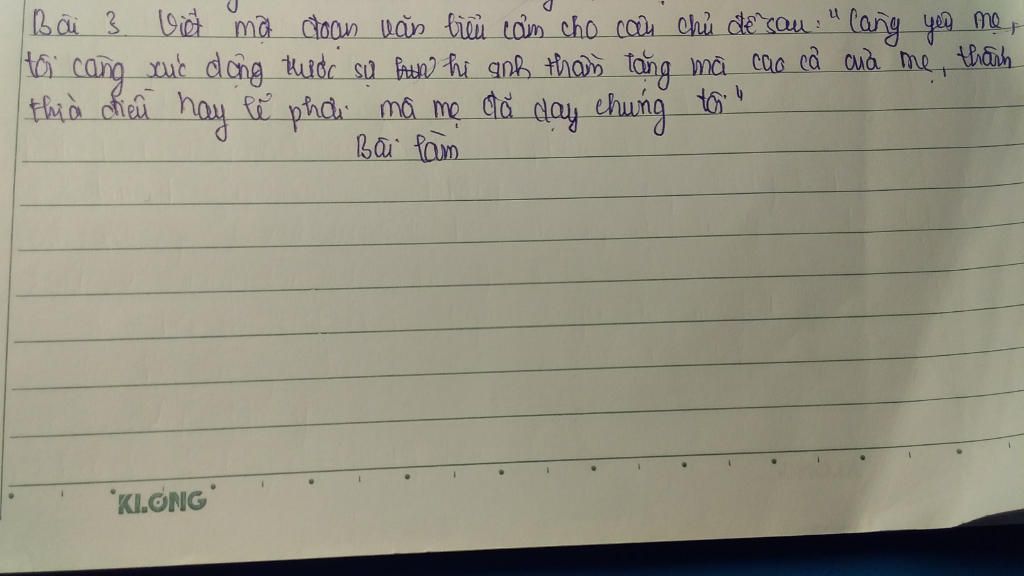 Bài 3. Viết một đoạn văn biểu cảm cho câu chủ đề sau: "Càng yêu mẹ,
tôi càng xúc động trước sự hi sinh thầm lặng mà cao cả của mẹ, thấm
thía điều hay lẽ phải mà mẹ đã dạy chúng tôi"
Bài làm
KLONG